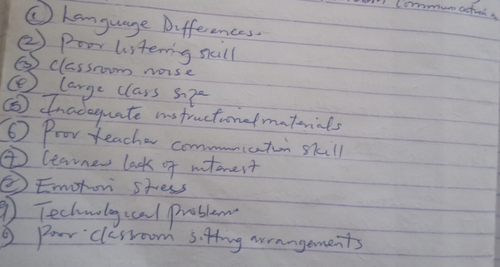 room communication
① Language Differences.
② Poor listening skill
③ classroom noise
④ Large class size
⑤ Inadequate instructional materials
⑥ Poor teacher communication skill
⑦ Learner lack of interest
⑧ Emotion stress
⑨ Technological problem
⑩ Poor classroom sitting arrangements